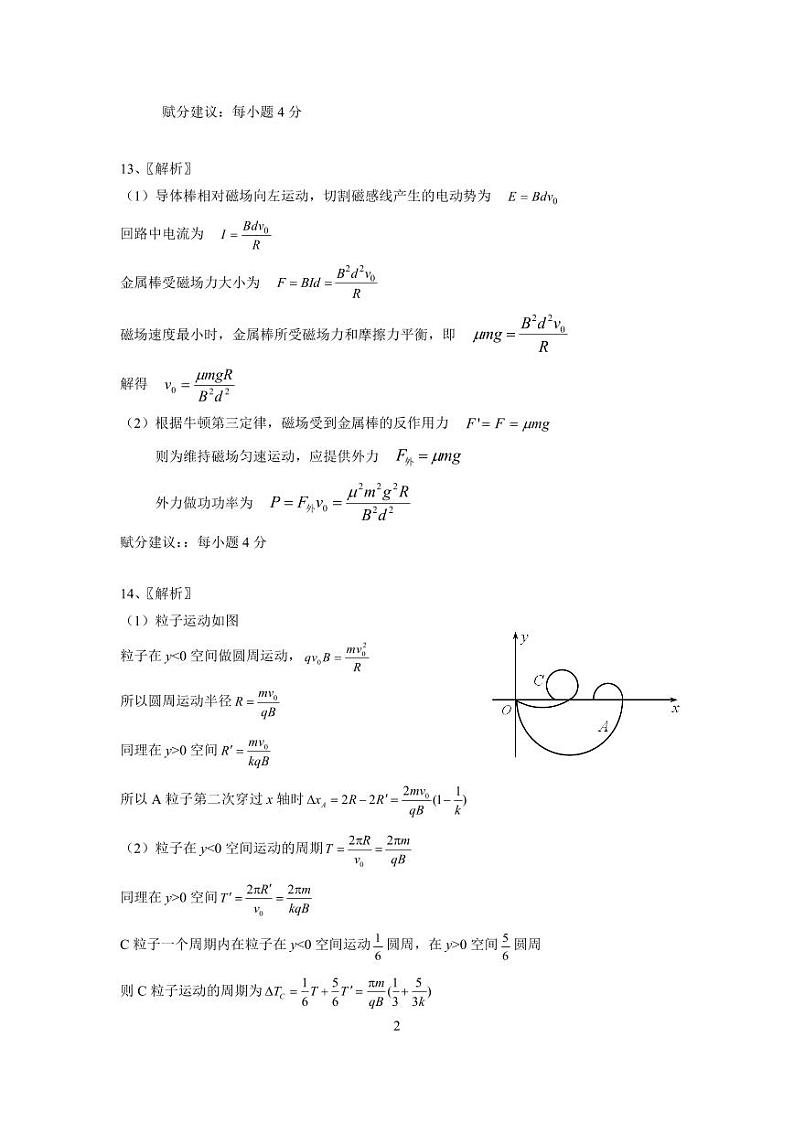 赋分建议：每小题 4 分
13、〖解析〗
（1）导体棒相对磁场向左运动，切割磁感线产生的电动势为 E = Bdv₀
回路中电流为 I = Bdv₀/R
金属棒受磁场力大小为 F = BId = B²d²v₀/R
磁场速度最小时，金属棒所受磁场力和摩擦力平衡，即 μmg = B²d²v₀/R
解得 v₀ = μmgR/B²d²
（2）根据牛顿第三定律，磁场受到金属棒的反作用力 F'= F = μmg
则为维持磁场匀速运动，应提供外力 F外 = μmg
外力做功功率为 P = F外v₀ = μ²m²g²R/B²d²
赋分建议：：每小题 4 分
14、〖解析〗
（1）粒子运动如图
粒子在 y<0 空间做圆周运动，qv₀B = mv₀²/R
所以圆周运动半径 R = mv₀/qB
同理在 y>0 空间 R′ = mv₀/kqB
所以 A 粒子第二次穿过 x 轴时 Δx_A = 2R − 2R′ = 2mv₀/qB(1 − 1/k)
y
C
O
A
x
（2）粒子在 y<0 空间运动的周期 T = 2πR/v₀ = 2πm/qB
同理在 y>0 空间 T′ = 2πR′/v₀ = 2πm/kqB
C 粒子一个周期内在粒子在 y<0 空间运动 1/6 圆周，在 y>0 空间 5/6 圆周
则 C 粒子运动的周期为 ΔT_C = 1/6 T + 5/6 T′ = πm/qB(1/3 + 5/3k)
2